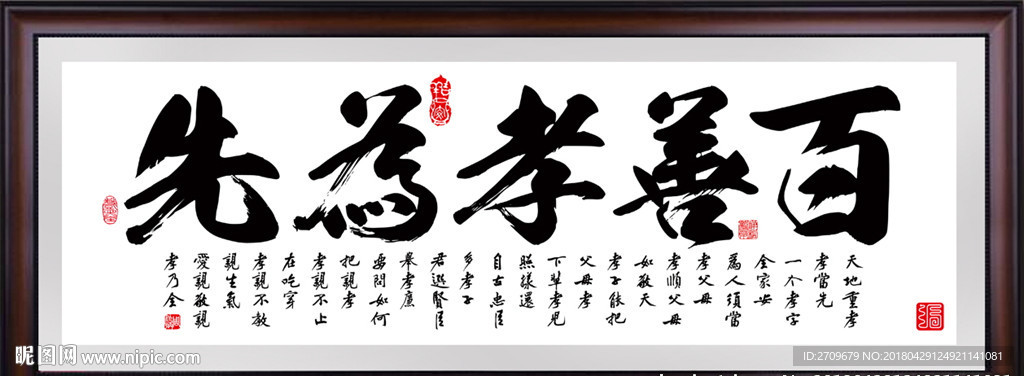 百善孝為先
天地重孝
孝當先
一个孝字
全家安
為人須當
孝父母
孝順父母
如敬天
孝子能把
父母孝
下輩孝兒
照樣還
自古忠臣
多孝子
君選賢臣
舉孝廉
要問如何
把親孝
孝親不止
在吃穿
孝親不教
親生氣
愛親敬親
孝乃全
昵图网 www.nipic.com
ID:2709679 NO:20180429124921141081